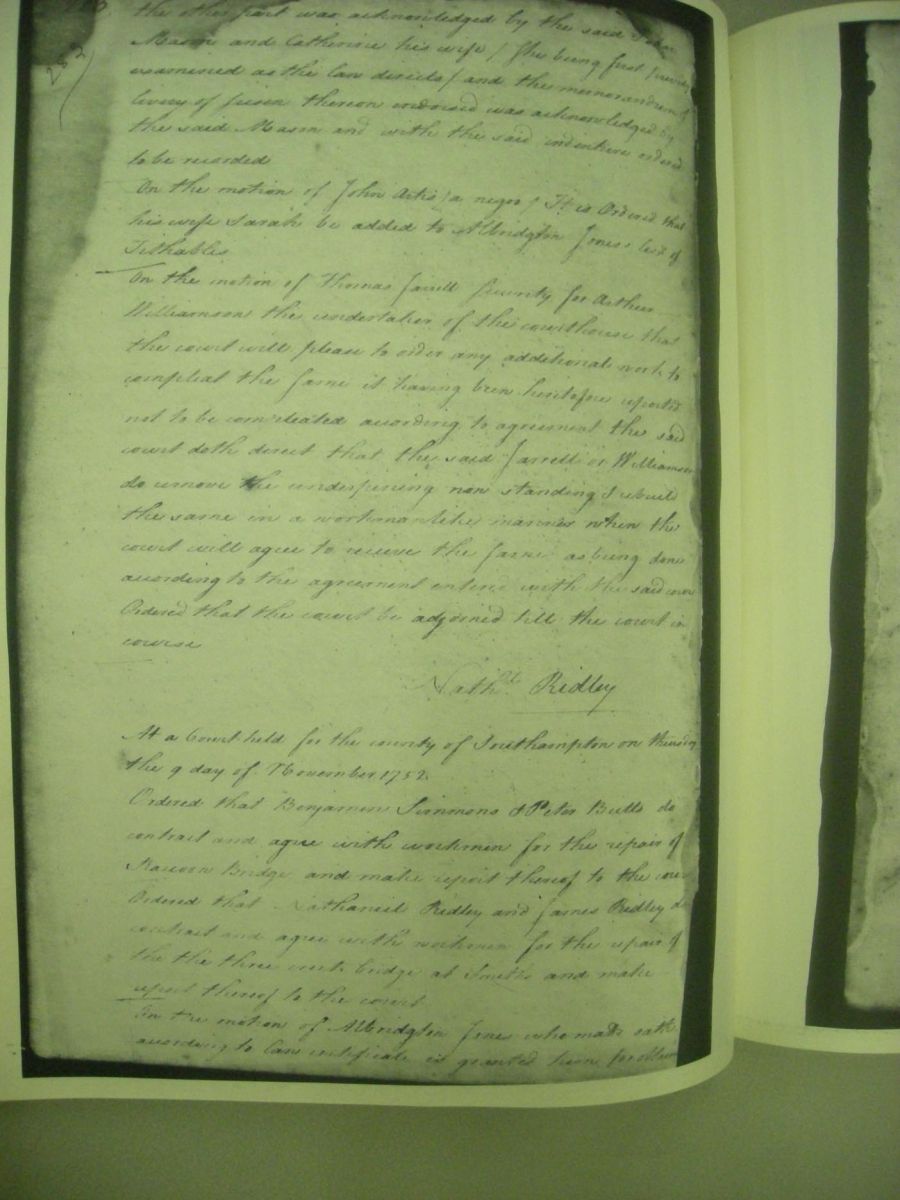 283
the other part was acknowledged by the said
Mason and Catherine his wife / She being first privily
examined as the law directs / and the memorandum of
livery of seisen thereon endorsed was acknowledged by
the said Mason and with the said indenture ordered
to be recorded
On the motion of John Artis / a negro / It is Ordered that
his wife Sarah be added to Albridgton Jones's list of
Tithables
On the motion of Thomas Jarrell security for Arthur
Williamson the undertaker of the courthouse that
the court will please to order any additional work to
compleat the same it having been heretofore reported
not to be compleated according to agreement the said
court doth direct that the said Jarrell or Williamson
do remove the underpening now standing & rebuild
the same in a workmanlike manner when the
court will agree to receive the same as being done
according to the agreement entered with the said court
Ordered that the court be adjorned till the court in
course
Nath.ll Ridley
At a Court held for the county of Southampton on thursday
the 9 day of November 1752
Ordered that Benjamin Simmons & Peter Butts do
contract and agree with workmen for the repair of
Racoon Bridge and make report thereof to the court
Ordered that Nathaniel Ridley and James Ridley do
contract and agree with workmen for the repair of
the the three creek bridge at Smiths and make
report thereof to the court
On the motion of Albridgton Jones who made oath
according to law certificate is granted him for